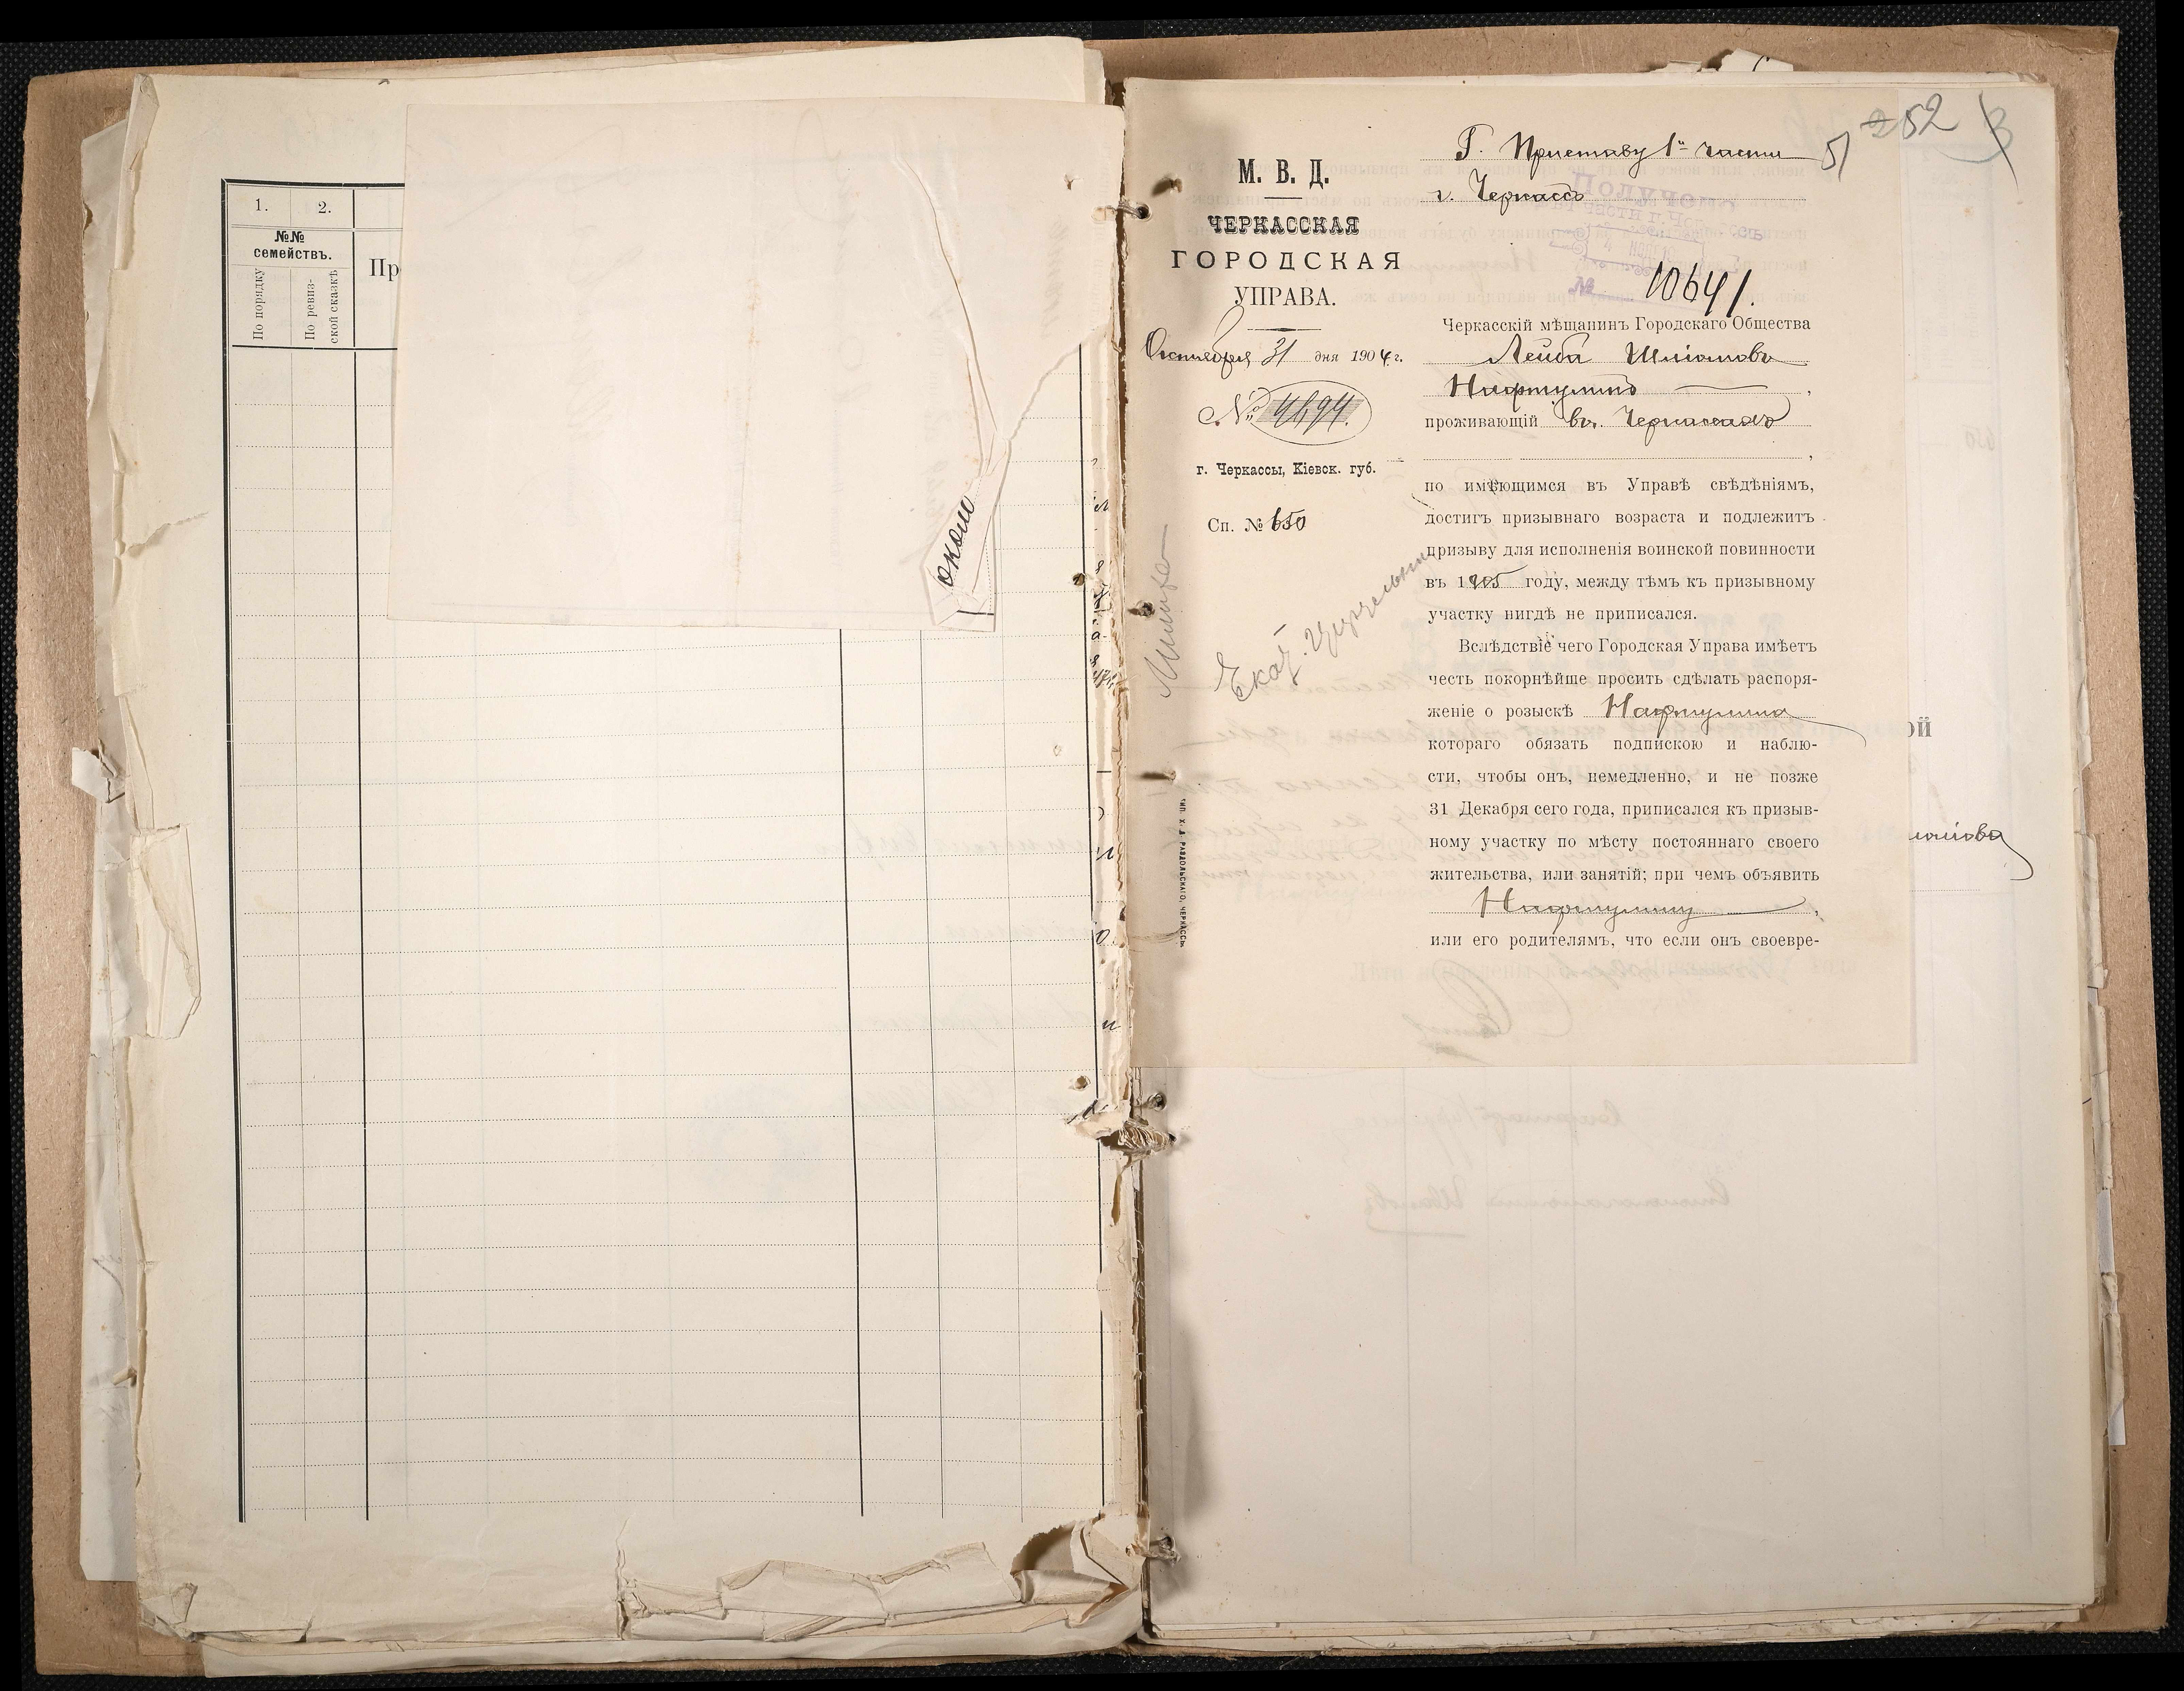 1.
2.
№№
семействъ.
По порядку
По ревиз-
ской сказкѣ
Пр
около
М. В. Д.
ЧЕРКАССКАЯ
ГОРОДСКАЯ
УПРАВА.
Октября 31 дня 1904 г.
№ 4694.
г. Черкассы, Кіевск. губ.
Сп. № 650
51 252 3
Г. Приставу 1й части
г. Черкассъ
Получено
части г. Черкассъ
4
№ 10641.
Черкасскій мѣщанинъ Городскаго Общества
Лейба Шліомовъ
Нафтулинъ ,
проживающій въ Черкассахъ
,
по имѣющимся въ Управѣ свѣдѣніямъ,
достигъ призывнаго возраста и подлежитъ
призыву для исполненія воинской повинности
въ 1905 году, между тѣмъ къ призывному
участку нигдѣ не приписался.
Вслѣдствіе чего Городская Управа имѣетъ
честь покорнѣйше просить сдѣлать распоря-
женіе о розыскѣ Нафтулина
котораго обязать подпискою и наблю-
сти, чтобы онъ, немедленно, и не позже
31 Декабря сего года, приписался къ призыв-
ному участку по мѣсту постояннаго своего
жительства, или занятій; при чемъ объявить
Нафтулину ,
или его родителямъ, что если онъ своевре-
ТИП. Х. Д. РАЗДОЛЬСКАГО, ЧЕРКАССЫ
ой